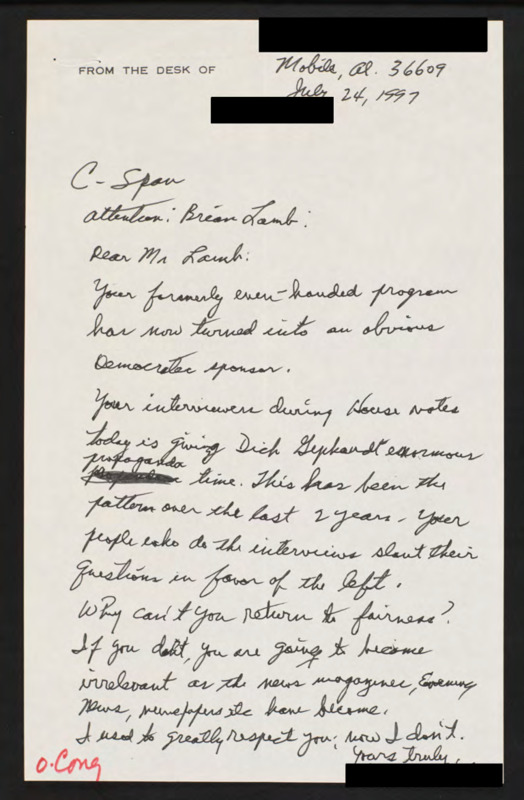 FROM THE DESK OF
Mobile, Al. 36609
July 24, 1997
C-Span
attention: Brian Lamb:
Dear Mr Lamb:
Your formerly even-handed program
has now turned into an obvious
Democratic sponsor.
Your interviewers during House votes
today is giving Dick Gephardt enormous
propaganda
time. This has been the
pattern over the last 2 years - your
people who do the interviews slant their
questions in favor of the left.
Why can't you return to fairness?
If you don't, you are going to become
irrelevant as the news magazines, Evening
News, newspapers etc have become.
I used to greatly respect you; now I don't.
Yours truly,
O.Cong